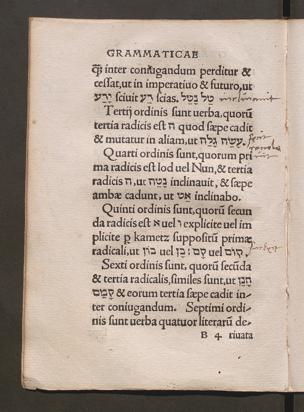 GRAMMATICAE
ꝙ inter coniugandum perditur &
cessat, ut in imperatiuo & futuro, ut
sciuit scias.
Tertij ordinis sunt uerba, quorũ
tertia radicis est ה quod sæpe cadit
& mutatur in aliam, ut
Quarti ordinis sunt, quorum pri
ma radicis est Iod uel Nun, & tertia
radicis ה, ut נטה inclinauit, & sæpe
ambæ cadunt, ut אט inclinabo.
Quinti ordinis sunt, quorũ secun
da radicis est א uel ו explicite uel im
plicite p kametz suppositũ primæ
radicali, ut קום uel קם: בן uel בון
Sexti ordinis sunt, quorũ secũda
& tertia radicalis, similes sunt, ut
& eorum tertia sæpe cadit in-
ter coniugandum. Septimi ordi-
nis sunt uerba quatuor literarũ de-
B 4 riuata